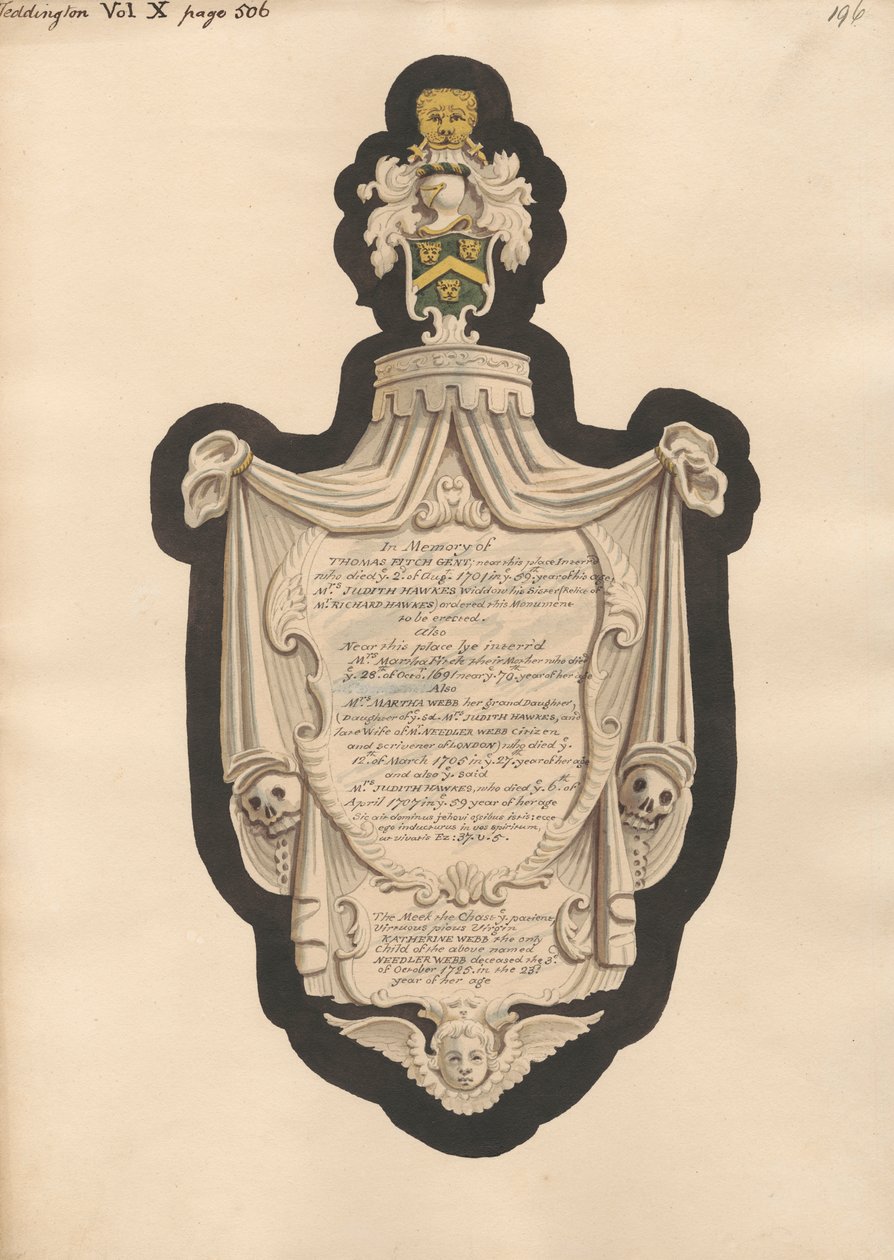 Teddington Vol X page 506
196
In Memory of
THOMAS FITCH GENT; near this place Interr'd
who died yͤ. 2. of Augᵗ. 1701 in yͤ. 59.ᵗʰ year of his age
Mʳˢ JUDITH HAWKES Widdow his Sister (Relict of
Mʳ RICHARD HAWKES) ordered this Monument
to be erected.
Also
Near this place lye interr'd
Mʳˢ Martha Fitch their Mother who died
yͤ. 28.ᵗʰ of Octoʳ. 1691 near yͤ. 70.ᵗʰ year of her age
Also
Mʳˢ MARTHA WEBB her grand Daughter,
(Daughter of yͤ. Sd. Mʳˢ JUDITH HAWKES, and
late Wife of Mʳ NEEDLER WEBB Citizen
and Scrivener of LONDON) who died yͤ.
12.ᵗʰ of March 1705 in yͤ. 27.ᵗʰ year of her age
and also yͤ. said
Mʳˢ JUDITH HAWKES, who died yͤ. 6.ᵗʰ of
April 1707 in yͤ. 59 year of her age
Sic ait dominus jehovi ossibus istis: ecce
ego inducturus in vos spiritum,
ut vivatis Ez: 37. v. 5.
The Meek the Chast yͤ. patient
Virtuous pious Virgin
KATHERINE WEBB the only
Child of the above named
NEEDLER WEBB deceased the 3ᵈ.
of October 1725. in the 23ᵈ
year of her age